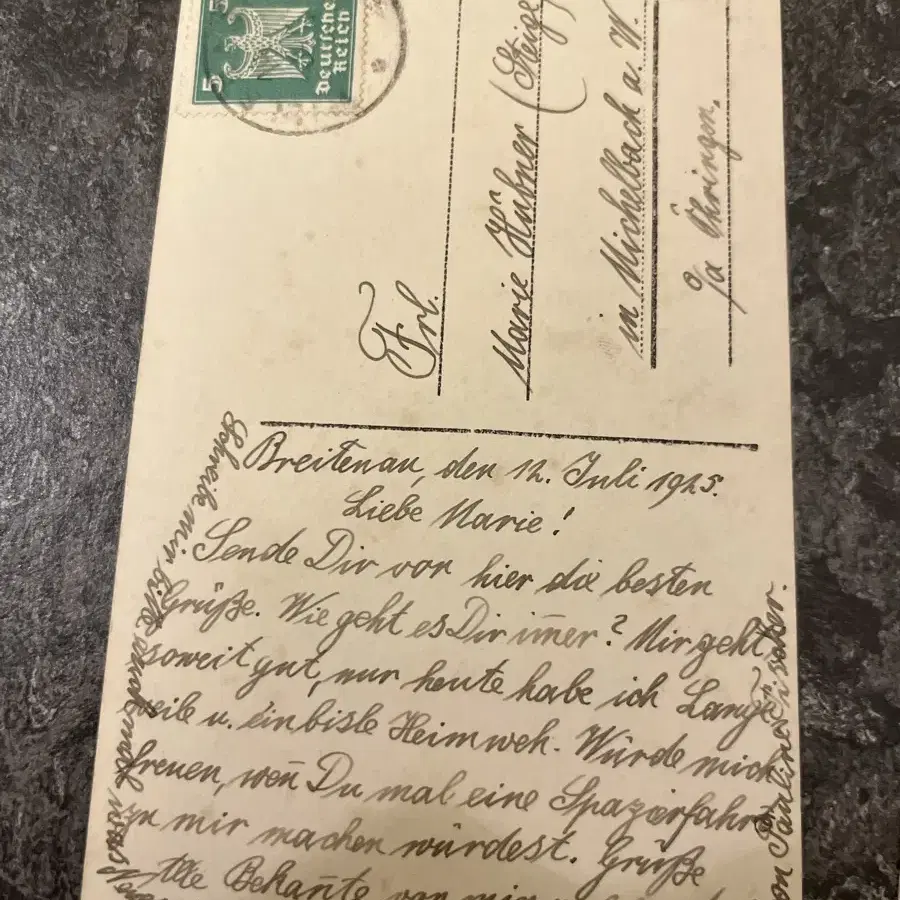 5
5
Deutsches
Reich
Frl.
Marie Hübner (Steige
in Michelbach a. W.
Öhringen.
Breitenau, den 12. Juli 1925.
Liebe Marie!
Sende Dir von hier die besten
Grüße. Wie geht es Dir im̅er? Mir geht
soweit gut, nur heute habe ich Lang
weile u. ein bisle Heimweh. Würde mich
freuen, wen̅ Du mal eine Spazierfahrt
zu mir machen würdest. Grüße
Bekan̅te von mir
Schreib mir bitte auch
von Pauline